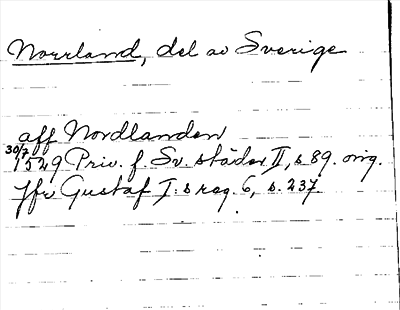 Norrland, del av Sverige
aff Nordlanden
30/7 1529 Priv. f. Sv. städer II, s 89. orig.
Jfr Gustaf I:s reg. 6, s. 237.